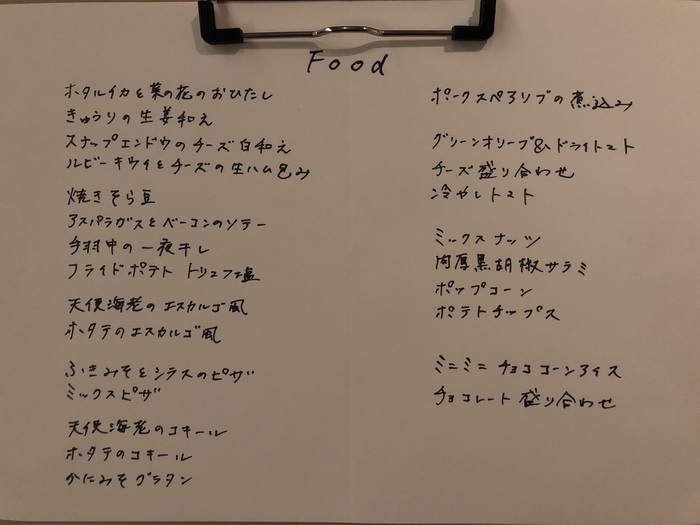 Food
ホタルイカと菜の花のおひたし
きゅうりの生姜和え
スナップエンドウのチーズ白和え
ルビーキウイとチーズの生ハム包み
焼きそら豆
アスパラガスとベーコンのソテー
手羽中の一夜干し
フライドポテト トリュフ塩
天使海老のエスカルゴ風
ホタテのエスカルゴ風
ふきみそとシラスのピザ
ミックスピザ
天使海老のコキール
ホタテのコキール
かにみそグラタン
ポークスペアリブの煮込み
グリーンオリーブ&ドライトマト
チーズ盛り合わせ
冷やしトマト
ミックスナッツ
肉厚黒胡椒サラミ
ポップコーン
ポテトチップス
ミニミニチョココーンアイス
チョコレート盛り合わせ